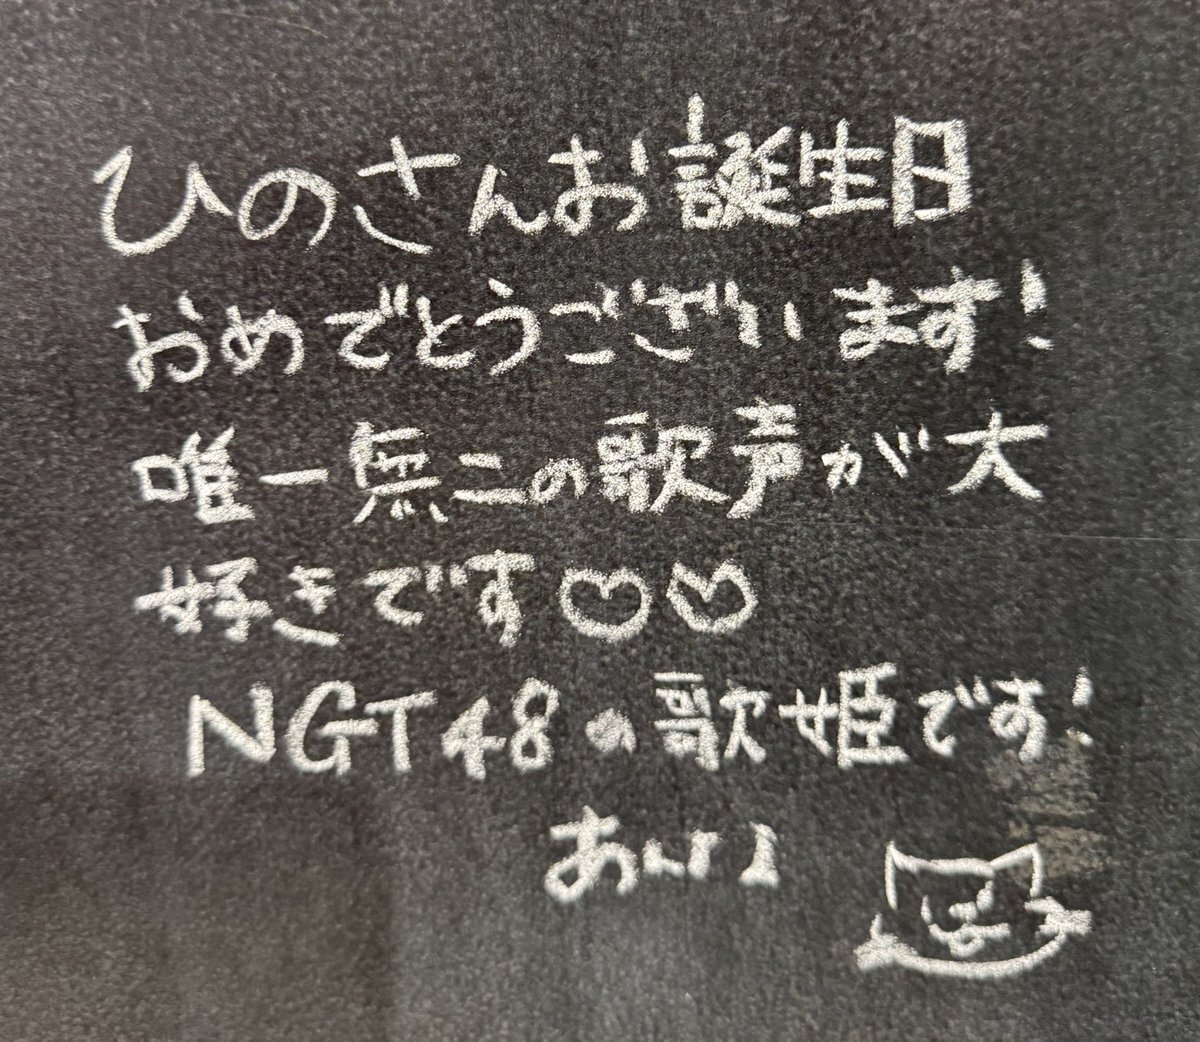 ひのさんお誕生日
おめでとうございます!
唯一無二の歌声が大
好きです♡♡
NGT48の歌姫です!